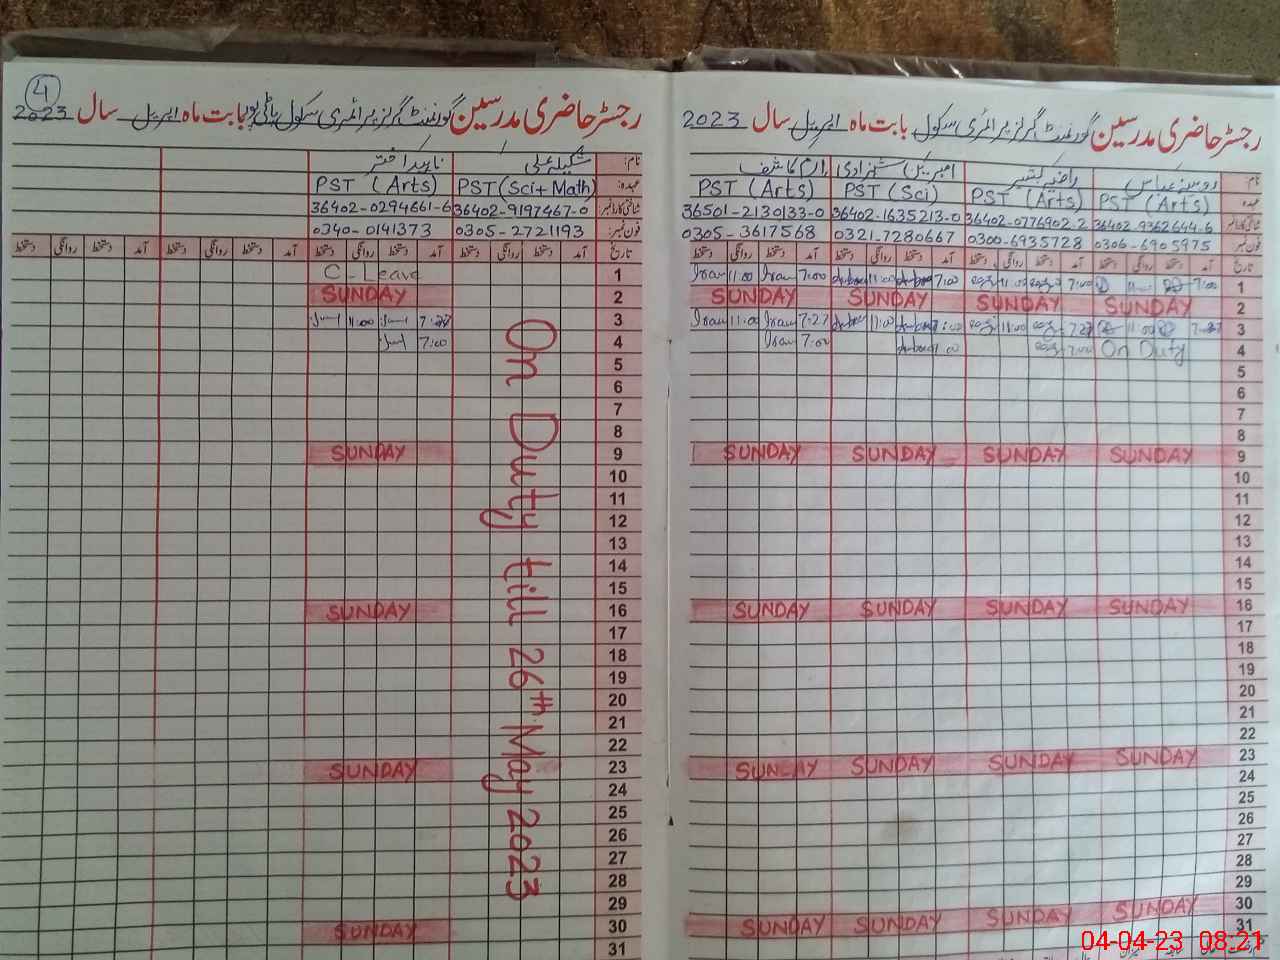 4
رجسٹر حاضری مدرسین گورنمنٹ گرلز پرائمری سکول بابت ماہ اپریل سال 2023
نام:
عہدہ:
شناختی کارڈ نمبر
فون نمبر:
شکیلہ علی
PST (Sci+Math)
36402-9197467-0
0305-2721193
ناہید اختر
PST (Arts)
36402-0294661-6
0340-0141373
تاریخ آمد دستخط روانگی دستخط آمد دستخط روانگی دستخط آمد دستخط روانگی دستخط آمد دستخط روانگی دستخط
1 C-Leave
2 SUNDAY
3 11:00
4 7:00
5
6
7
8
9 SUNDAY
10
11
12
13
14
15
16 SUNDAY
17
18
19
20
21
22
23 SUNDAY
24
25
26
27
28
29
30 SUNDAY
31
On Duty till 26th May 2023
رجسٹر حاضری مدرسین گورنمنٹ گرلز پرائمری سکول بابت ماہ اپریل سال 2023
نام:
عہدہ:
شناختی کارڈ نمبر
فون نمبر:
عباس
PST (Arts)
36402-9362644-6
0306-6905975
PST (Arts)
36402-0776902-2
0300-6935728
امبرین شہزادی
PST (Sci)
36402-1635213-0
0321-7280667
ارم کاشف
PST (Arts)
36501-2130133-0
0305-3617568
تاریخ آمد دستخط روانگی دستخط آمد دستخط روانگی دستخط آمد دستخط روانگی دستخط آمد دستخط روانگی دستخط
Iram 11:00 Iram 7:00 11:00 7:00 11:00 7:00 11:00 7:00 1
SUNDAY SUNDAY SUNDAY SUNDAY 2
Iram 11:00 Iram 7:27 11:00 11:00 7:27 11:00 3
Iram 7:00 7:00 On Duty 4
5
6
7
8
SUNDAY SUNDAY SUNDAY SUNDAY 9
10
11
12
13
14
15
SUNDAY SUNDAY SUNDAY SUNDAY 16
17
18
19
20
21
22
SUNDAY SUNDAY SUNDAY SUNDAY 23
24
25
26
27
28
29
SUNDAY SUNDAY SUNDAY SUNDAY 30
31
04-04-23 08:21